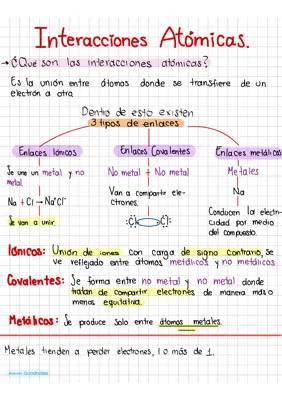 Interacciones Atómicas.
→ ¿Qué son las interacciones atómicas?
Es la unión entre átomos donde se transfiere de un
electrón a otro.
Dentro de esto existen
3 tipos de enlaces
Enlaces Iónicos
Enlaces Covalentes
Enlaces metálicos
Se une un metal y no
metal.
No metal + No metal
Metales
Na + Cl → Na⁺Cl⁻
Van a compartir ele-
ctrones.
Na
Se van a unir.
:Cl Cl:
Conducen la electri-
cidad por medio
del compuesto.
Iónicos: Unión de iones con carga de signo contrario, se
ve reflejado entre átomos metálicos y no metálicos
Covalentes: Se forma entre no metal y no metal donde
tratan de compartir electrones de manera más o
menos equitativa.
Metálicos: Se produce solo entre átomos metales.
Metales tienden a perder electrones, 1 o más de 1.